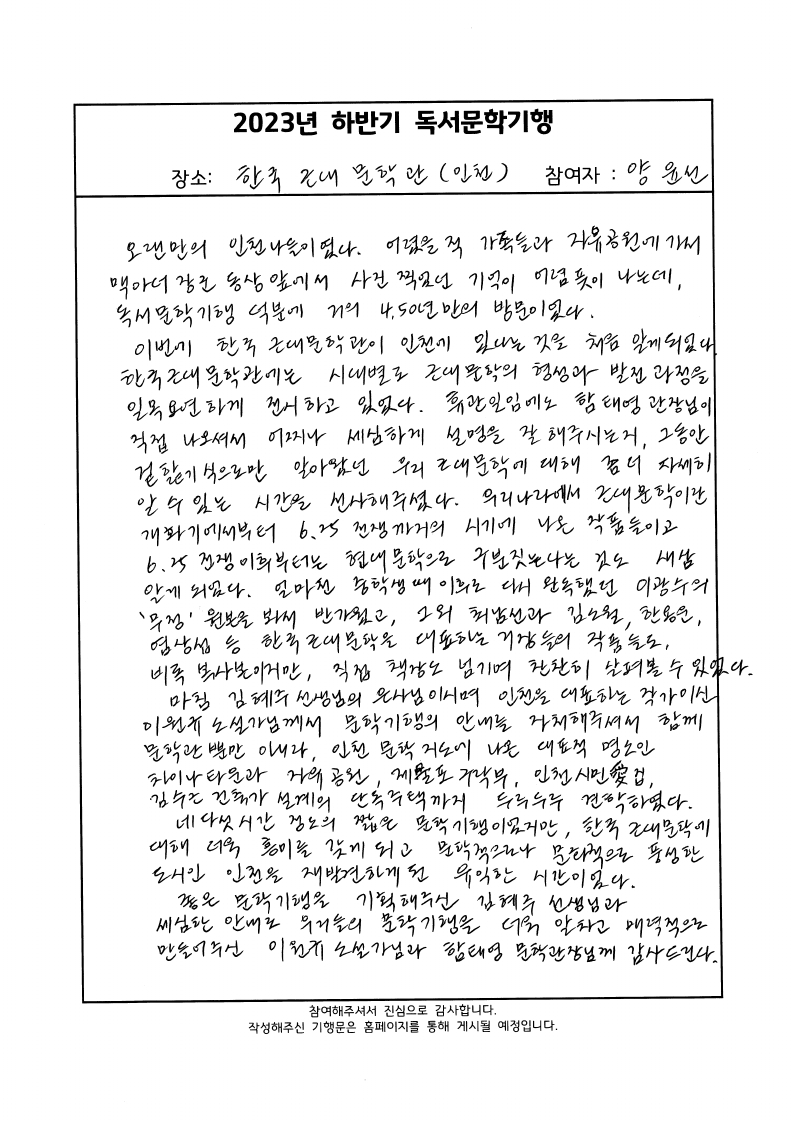 2023년 하반기 독서문학기행
장소: 한국 근대 문학관 (인천) 참여자 : 양윤선
오랜만의 인천나들이였다. 어렸을 적 가족들과 자유공원에 가서
맥아더 장군 동상 앞에서 사진 찍었던 기억이 어렴풋이 나는데,
독서문학기행 덕분에 거의 4,50년만의 방문이었다.
이번에 한국 근대문학관이 인천에 있다는 것을 처음 알게되었다.
한국근대문학관에는 시대별로 근대문학의 형성과 발전과정을
일목요연하게 전시하고 있었다. 휴관일임에도 함태영 관장님이
직접 나오셔서 어찌나 세심하게 설명을 잘 해주시는지, 그동안
겉핥기식으로만 알아왔던 우리 근대문학에 대해 좀 더 자세히
알 수 있는 시간을 선사해주셨다. 우리나라에서 근대문학이란
개화기에서부터 6.25 전쟁까지의 시기에 나온 작품들이고
6.25 전쟁이후부터는 현대문학으로 구분짓는다는 것도 새삼
알게 되었다. 얼마전 중학생때 이후로 다시 완독했던 이광수의
'무정' 원본을 봐서 반가웠고, 그외 최남선과 김소월, 한용운,
염상섭 등 한국근대문학을 대표하는 거장들의 작품들도,
비록 복사본이지만, 직접 책장도 넘기며 찬찬히 살펴볼 수 있었다.
마침 김혜주 선생님의 은사님이시며 인천을 대표하는 작가이신
이원규 소설가님께서 문학기행의 안내를 자처해주셔서 함께
문학관 뿐만 아니라, 인천 문학 지도에 나온 대표적 명소인
차이나타운과 자유공원, 제물포 구락부, 인천시민愛집,
김수근 건축가 설계의 단독주택까지 두루두루 견학하였다.
네다섯시간 정도의 짧은 문학기행이었지만, 한국 근대문학에
대해 더욱 흥미를 갖게 되고 문학적으로나 문화적으로 풍성한
도시인 인천을 재발견하게 된 유익한 시간이었다.
좋은 문학기행을 기획해주신 김혜주 선생님과
세심한 안내로 우리들의 문학기행을 더욱 알차고 매력적으로
만들어주신 이원규 소설가님과 함태영 문학관장님께 감사드린다.
참여해주셔서 진심으로 감사합니다.
작성해주신 기행문은 홈페이지를 통해 게시될 예정입니다.